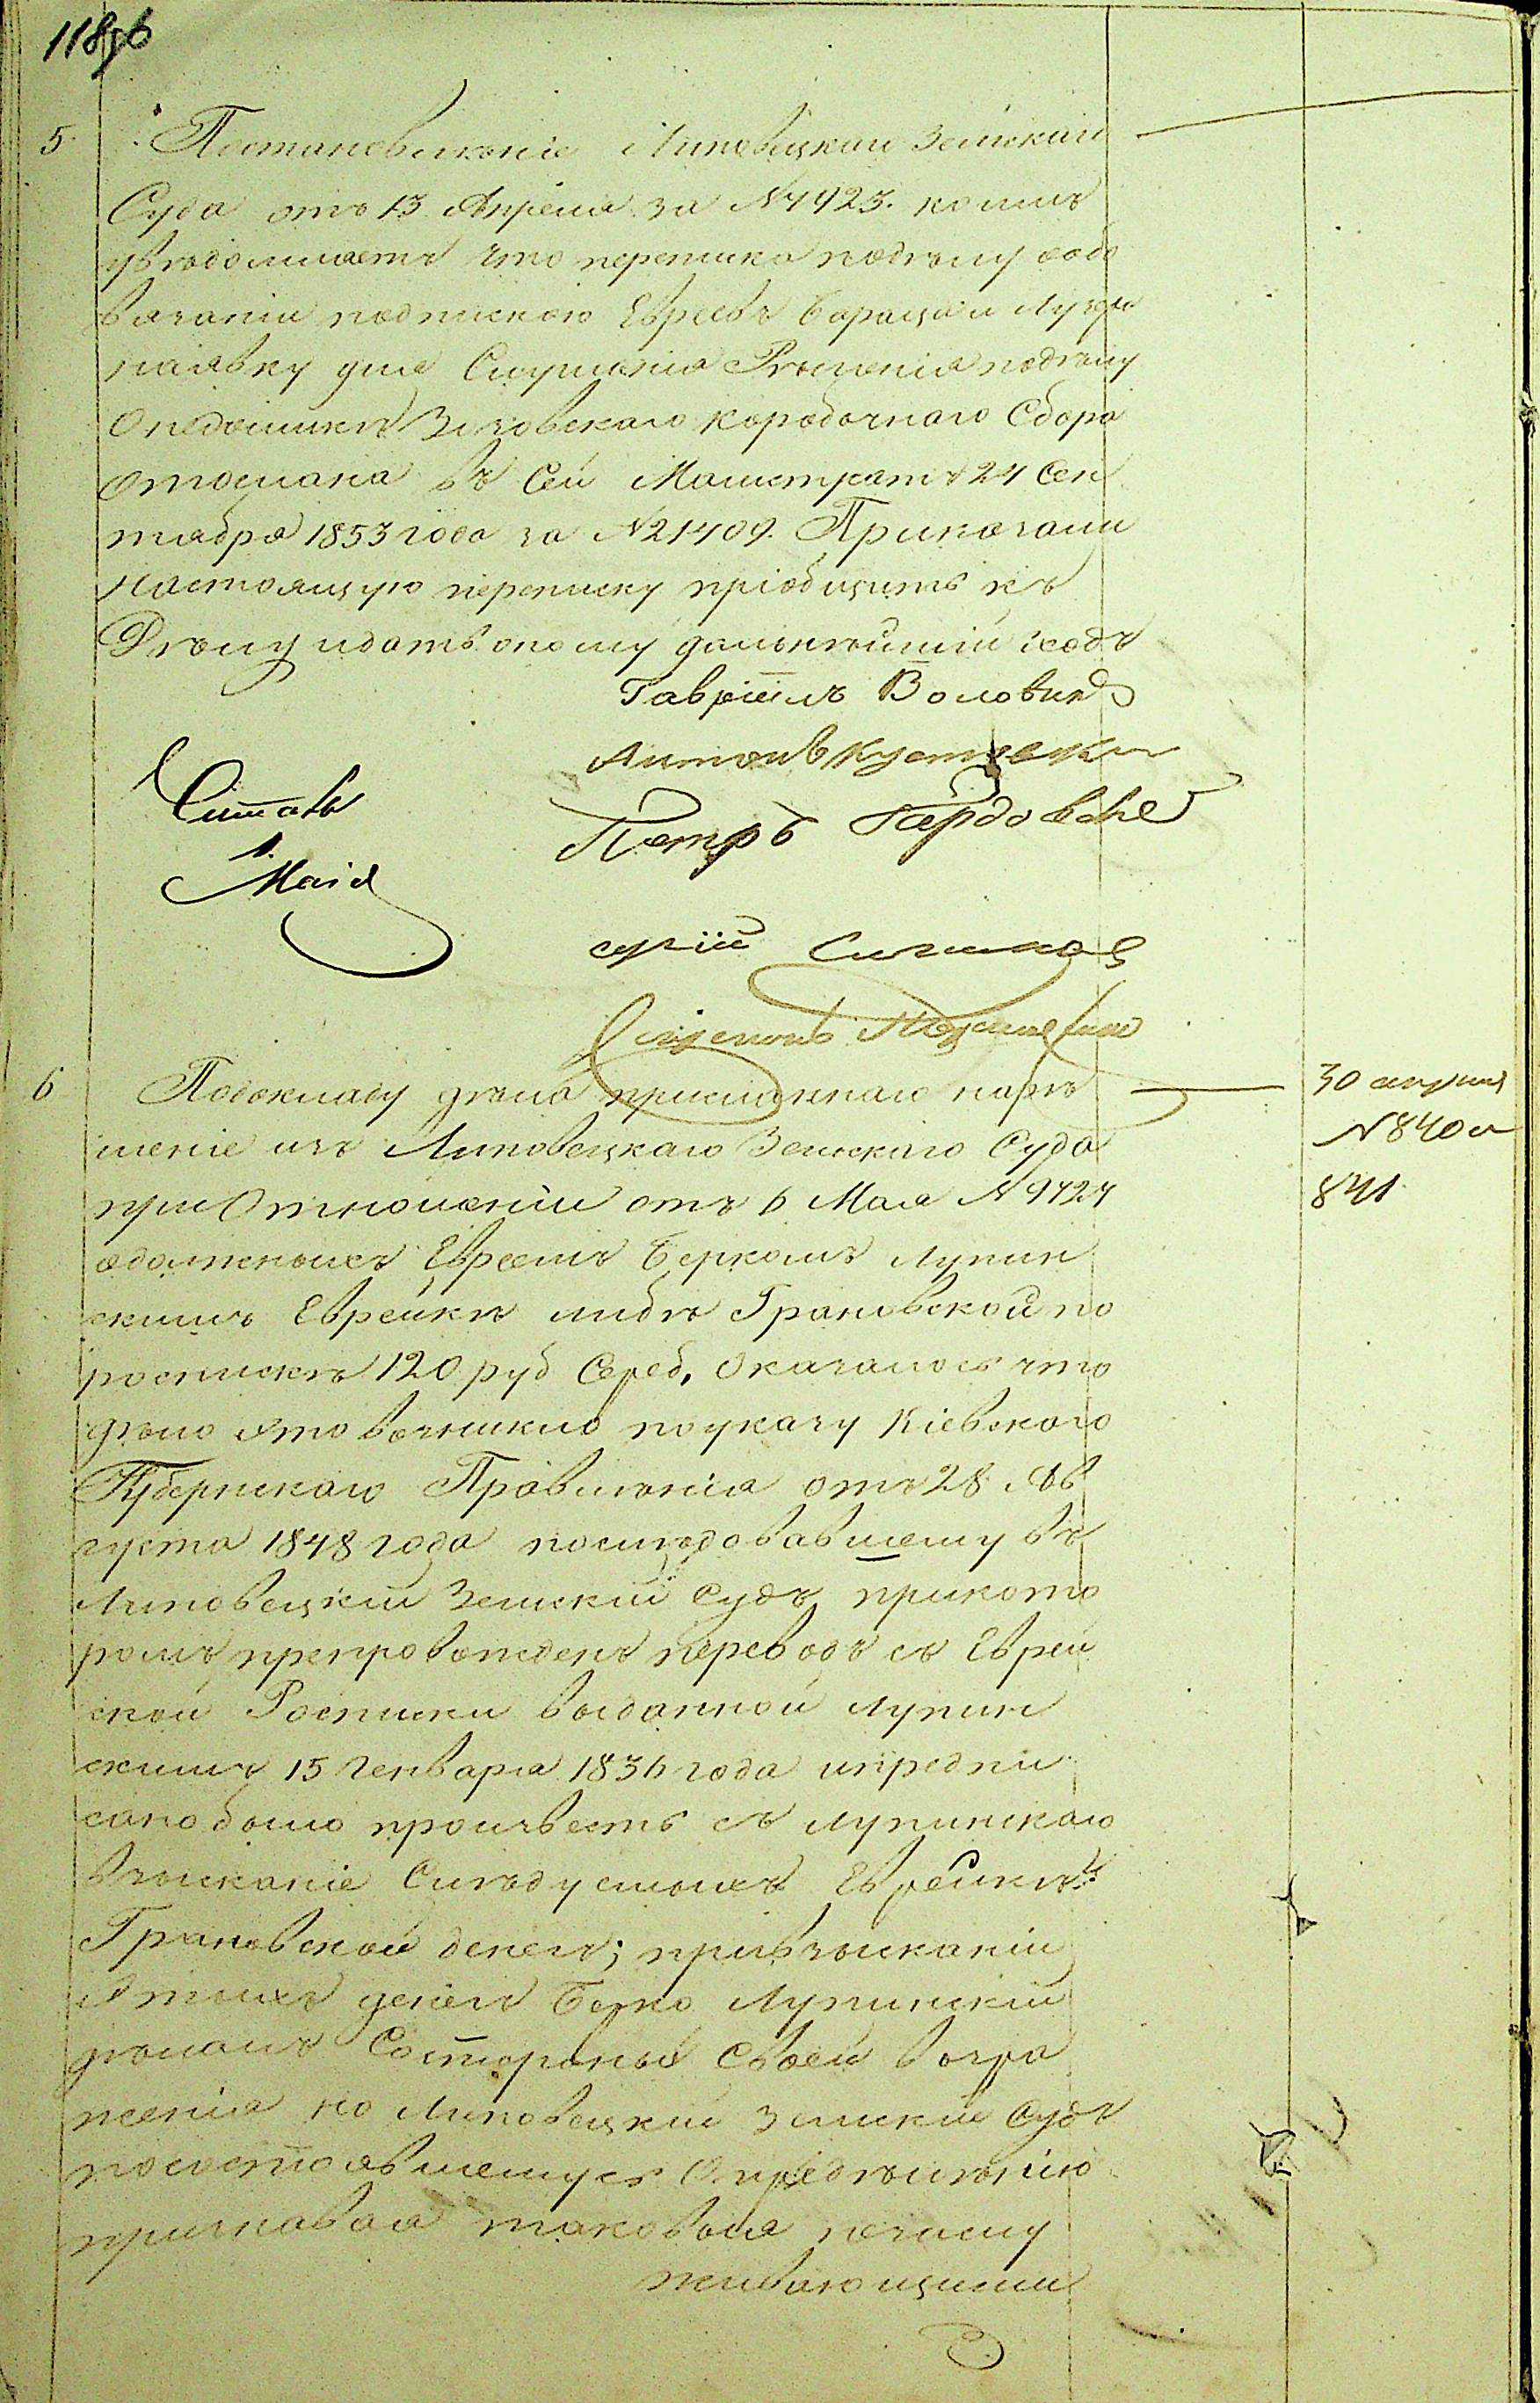 118об
5. Постановленіе Липовецкаго Земскаго
Суда отъ 13 Апреля за № 7923. коимъ
увѣдомляетъ что переписка подѣлу ообо
вязаніи подпискою Евреевъ и
наявку для Слушанія Рѣшенія подѣлу
О недоимкѣ Зозовскаго Коробочнаго Сбора
отослана въ Сей Магистратъ 24 Сен
тября 1853 года за № 21409. Приказали
Настоящую переписку пріобщить къ
Дѣлу идать оному дальнѣйшій ходъ
Гавріилъ Воловик
Антонъ
Петръ
Читалъ
1.
Маія
6 Подокладу дѣла присланнаго нарѣ
шеніе изъ Липовецкаго Земскаго Суда
при Отношеніи отъ 6 Мая № 9424
одолжныхъ Евреемъ Беркомъ Лупин
скимъ Еврейкѣ Либѣ Грановской по
роспискѣ 120 руб Сереб, Оказалось что
дѣло это возникло поуказу Кіевскаго
Губернскаго Правленія отъ 28 Ав
густа 1848 года послѣдовавшему въ
Липовецкій Земскій Судъ, прикото
ромъ препровожденъ переводъ съ Еврей
ской Росписки выданной Лупин
скимъ 15 Генваря 1836 года ипредпи
сано было произвесть съ Лупинскаго
взысканіе Слѣдуемыхъ Еврейкѣ
Грановской денегъ; привзысканіи
Этихъ денегъ Берко Лупинскій
дѣлалъ Состороны Своей возра
женія но Липовецкій Земскій Судъ
посостоявшемуся Опредѣленію
признавая таковыя незаслу
живающими
30 апреля
№ 840 и
841